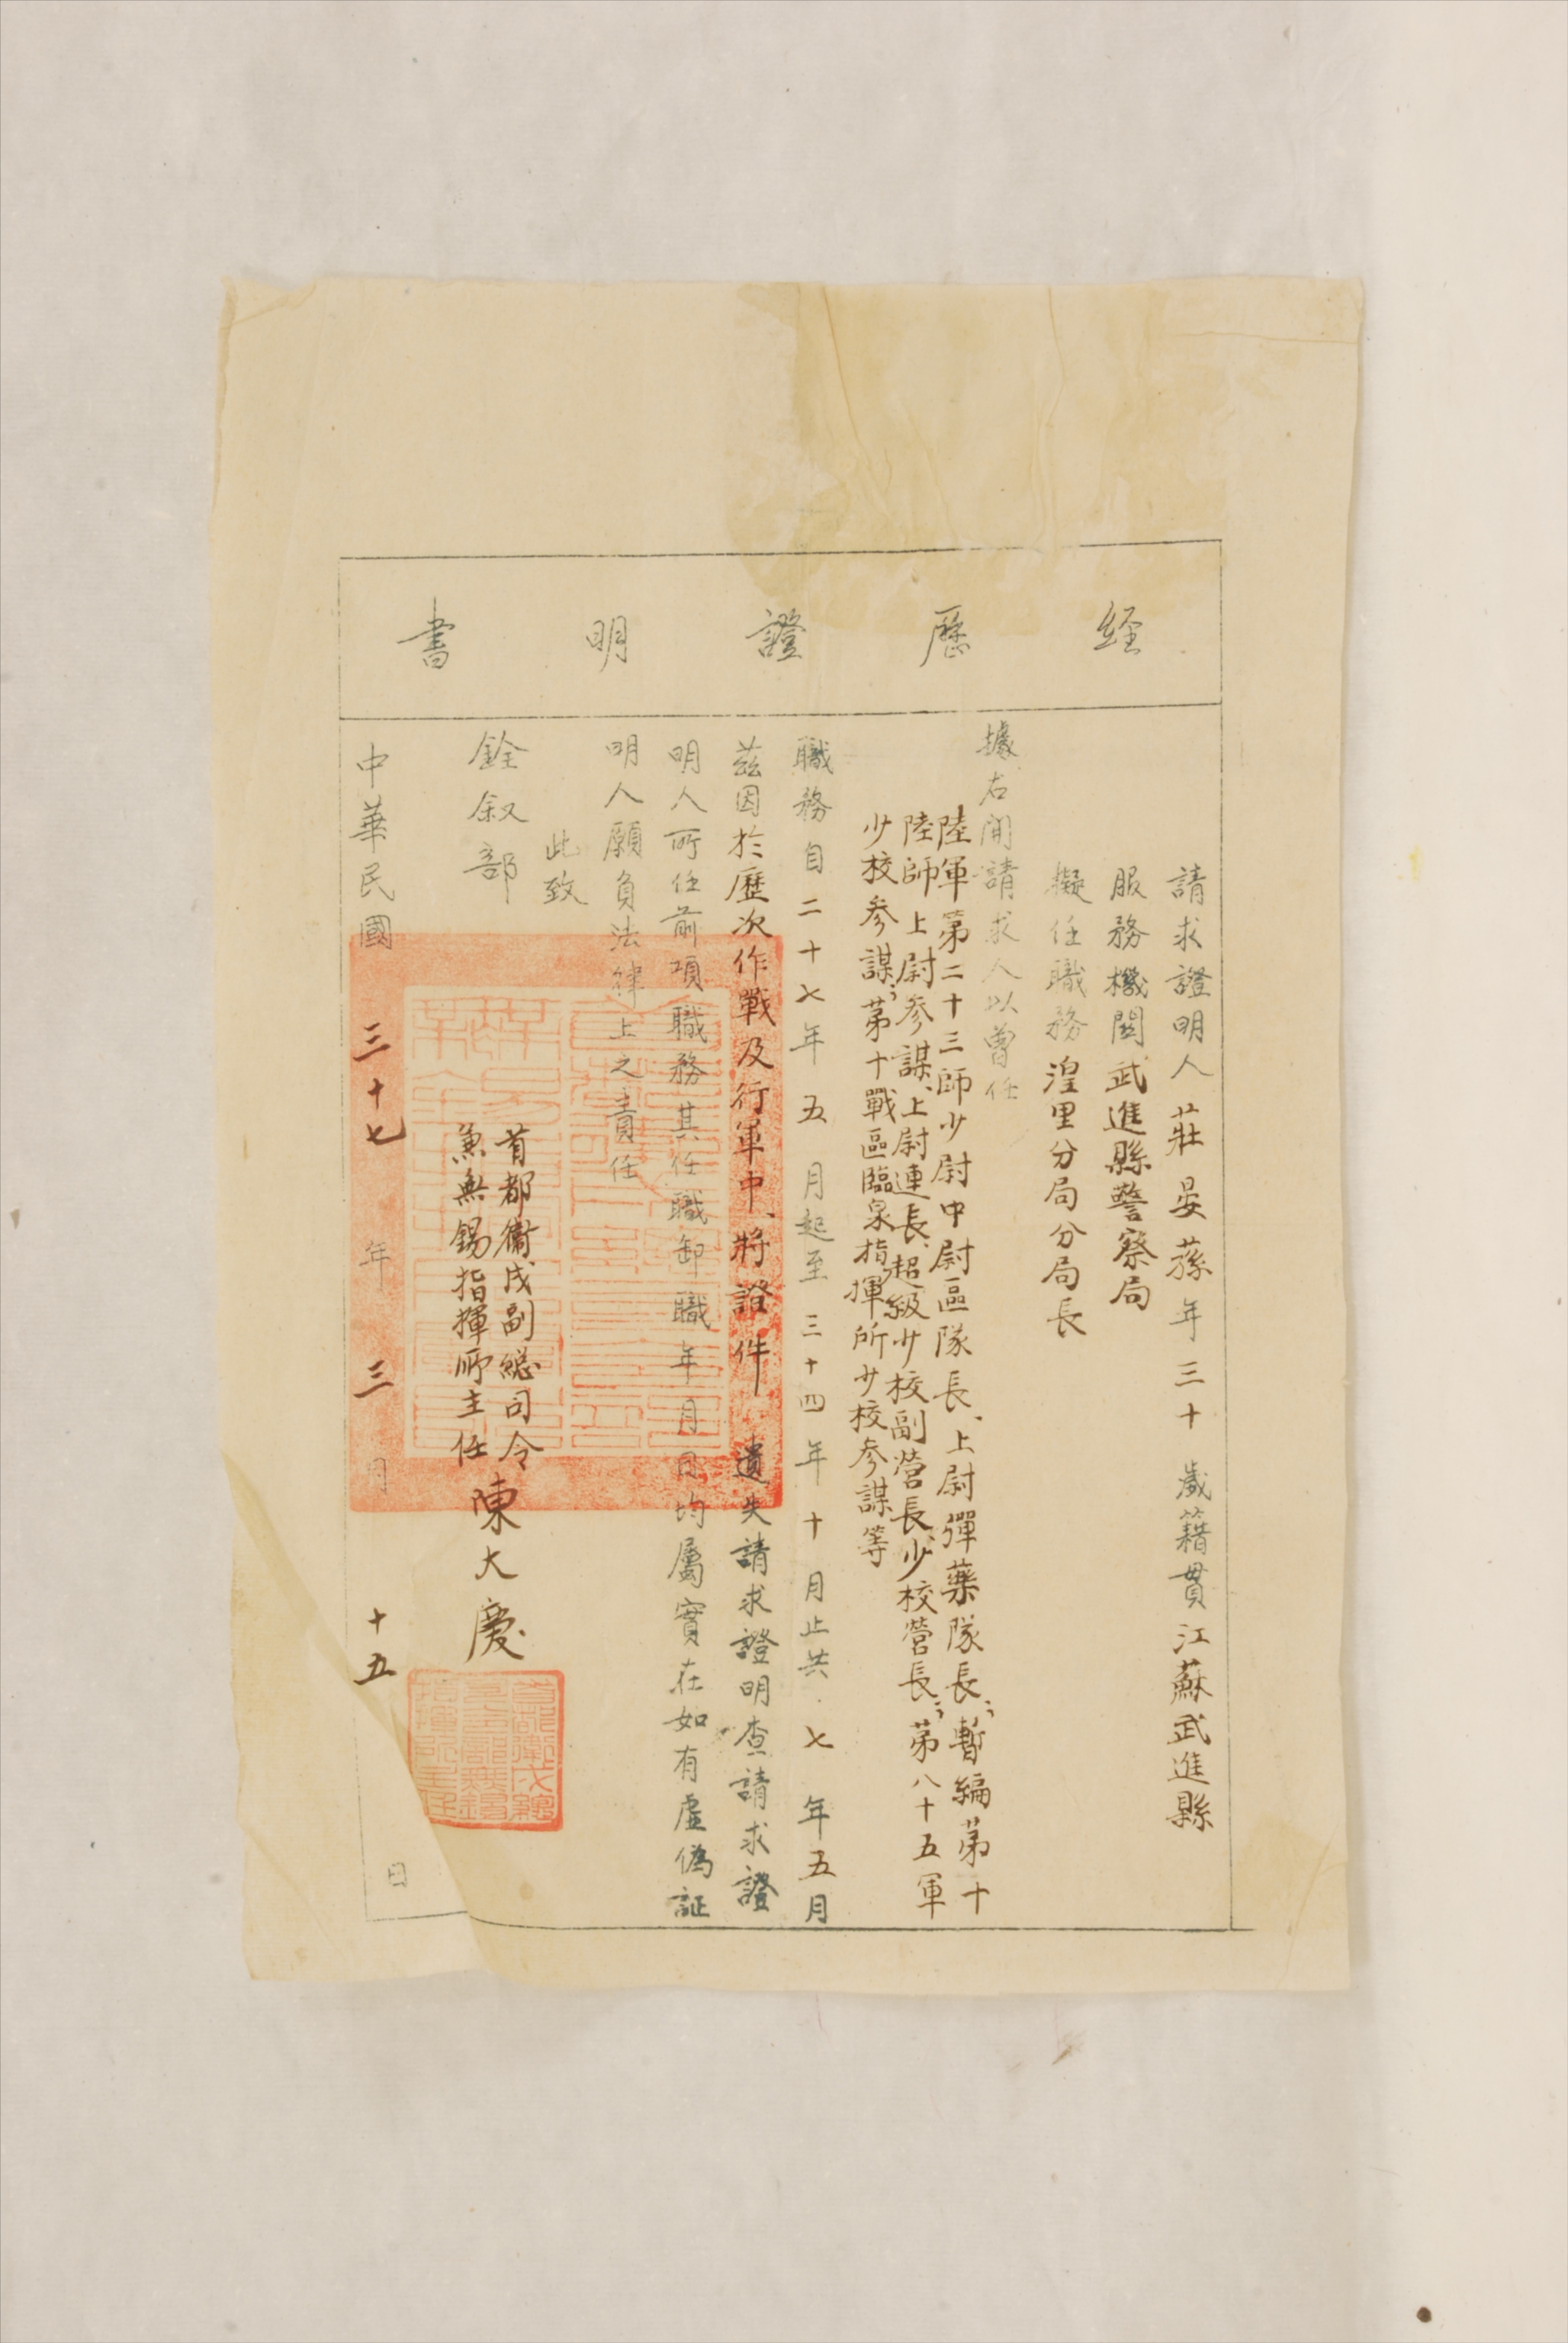 經歷證明書
請求證明人莊晏蓀年三十歲籍貫江蘇武進縣
服務機關武進縣警察局
擬任職務湟里分局分局長
據右開請求人以曾任
陸軍第二十三師少尉中尉區隊長、上尉彈藥隊長、暫編第十
陸師上尉參謀、上尉連長、超級少校副營長、少校營長、第八十五軍
少校參謀、第十戰區臨泉指揮所少校參謀等
職務自二十七年五月起至三十四年十月止共七年五月
茲因於歷次作戰及行軍中、將證件遺失請求證明查請求證
明人所任前項職務其任職卸職年月日均屬實在如有虛偽証
明人願負法律上之責任
此致
銓叙部
首都衞戍副総司令
兼無錫指揮所主任陳大慶
中華民國三十七年三月十五日